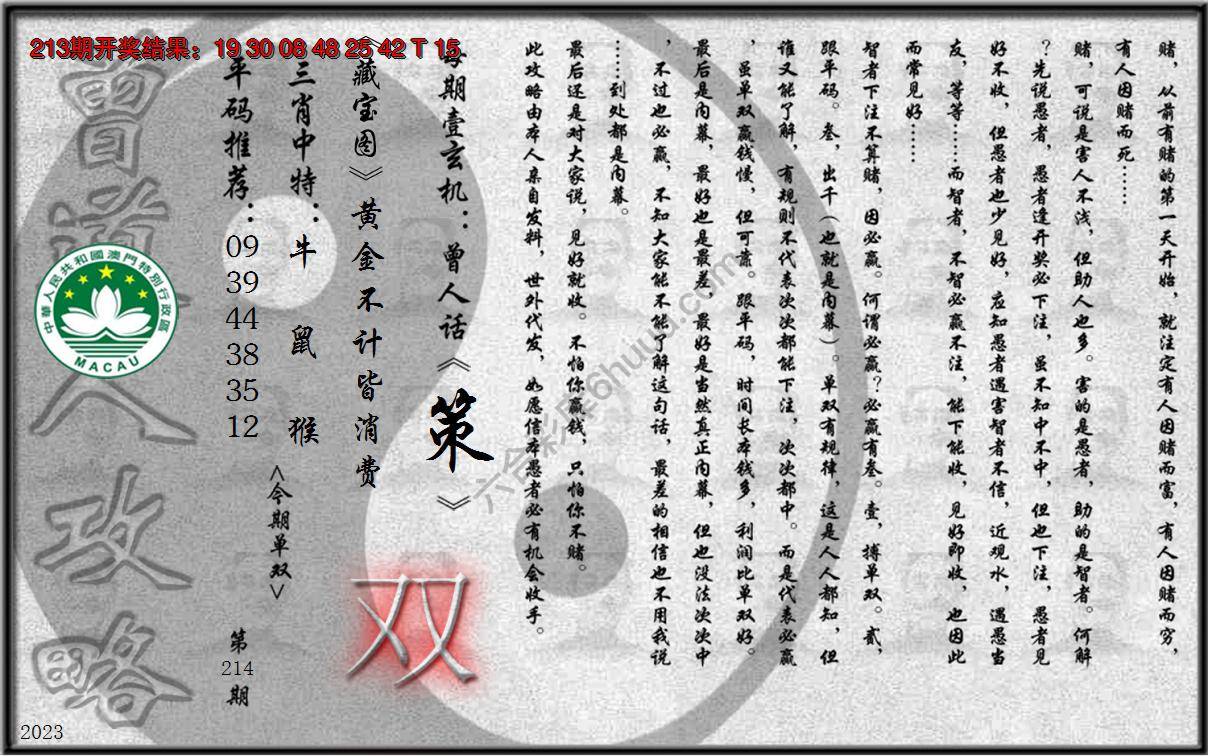 213期开奖结果：19 30 08 48 25 42 T 15
赌，从前有赌的第一天开始，就注定有人因赌而富，有人因赌而穷，
有人因赌而死……
赌，可说是害人不浅，但助人也多。害的是愚者，助的是智者。何解
？先说愚者，愚者逢开奖必下注，虽不知中不中，但也下注，愚者见
好不收，但愚者也少见好，应知愚者遇害智者不信，近观水，遇愚当
友，等等……而智者，不智必赢不注，能下能收，见好即收，也因此
而常见好……
智者下注不算赌，因必赢。何谓必赢？必赢有叁。壹，搏单双。贰，
跟平码。叁，出千（也就是内幕）。单双有规律，这是人人都知，但
谁又能了解，有规则不代表次次都能下注，次次都中。而是代表必赢
，虽单双赢钱慢，但可靠。跟平码，时间长本钱多，利润比单双好。
最后是内幕，最好也是最差，最好是当然真正内幕，但也没法次次中
，不过也必赢，不知大家能不能了解这句话，最差的相信也不用我说
……到处都是内幕。
最后还是对大家说，见好就收。不怕你赢钱，只怕你不赌。
此攻略由本人亲自发料，世外代发，如愿信本愚者必有机会收手。
每期壹玄机：曾人话《策》
《藏宝图》黄金不计皆消费
三肖中特：牛 鼠 猴
平码推荐：
09
39
44
38
35
12
<今期单双>
双
第
214
期
曾道人攻略
中華人民共和國澳門特別行政區
MACAU
六合彩库6huuu.com
2023